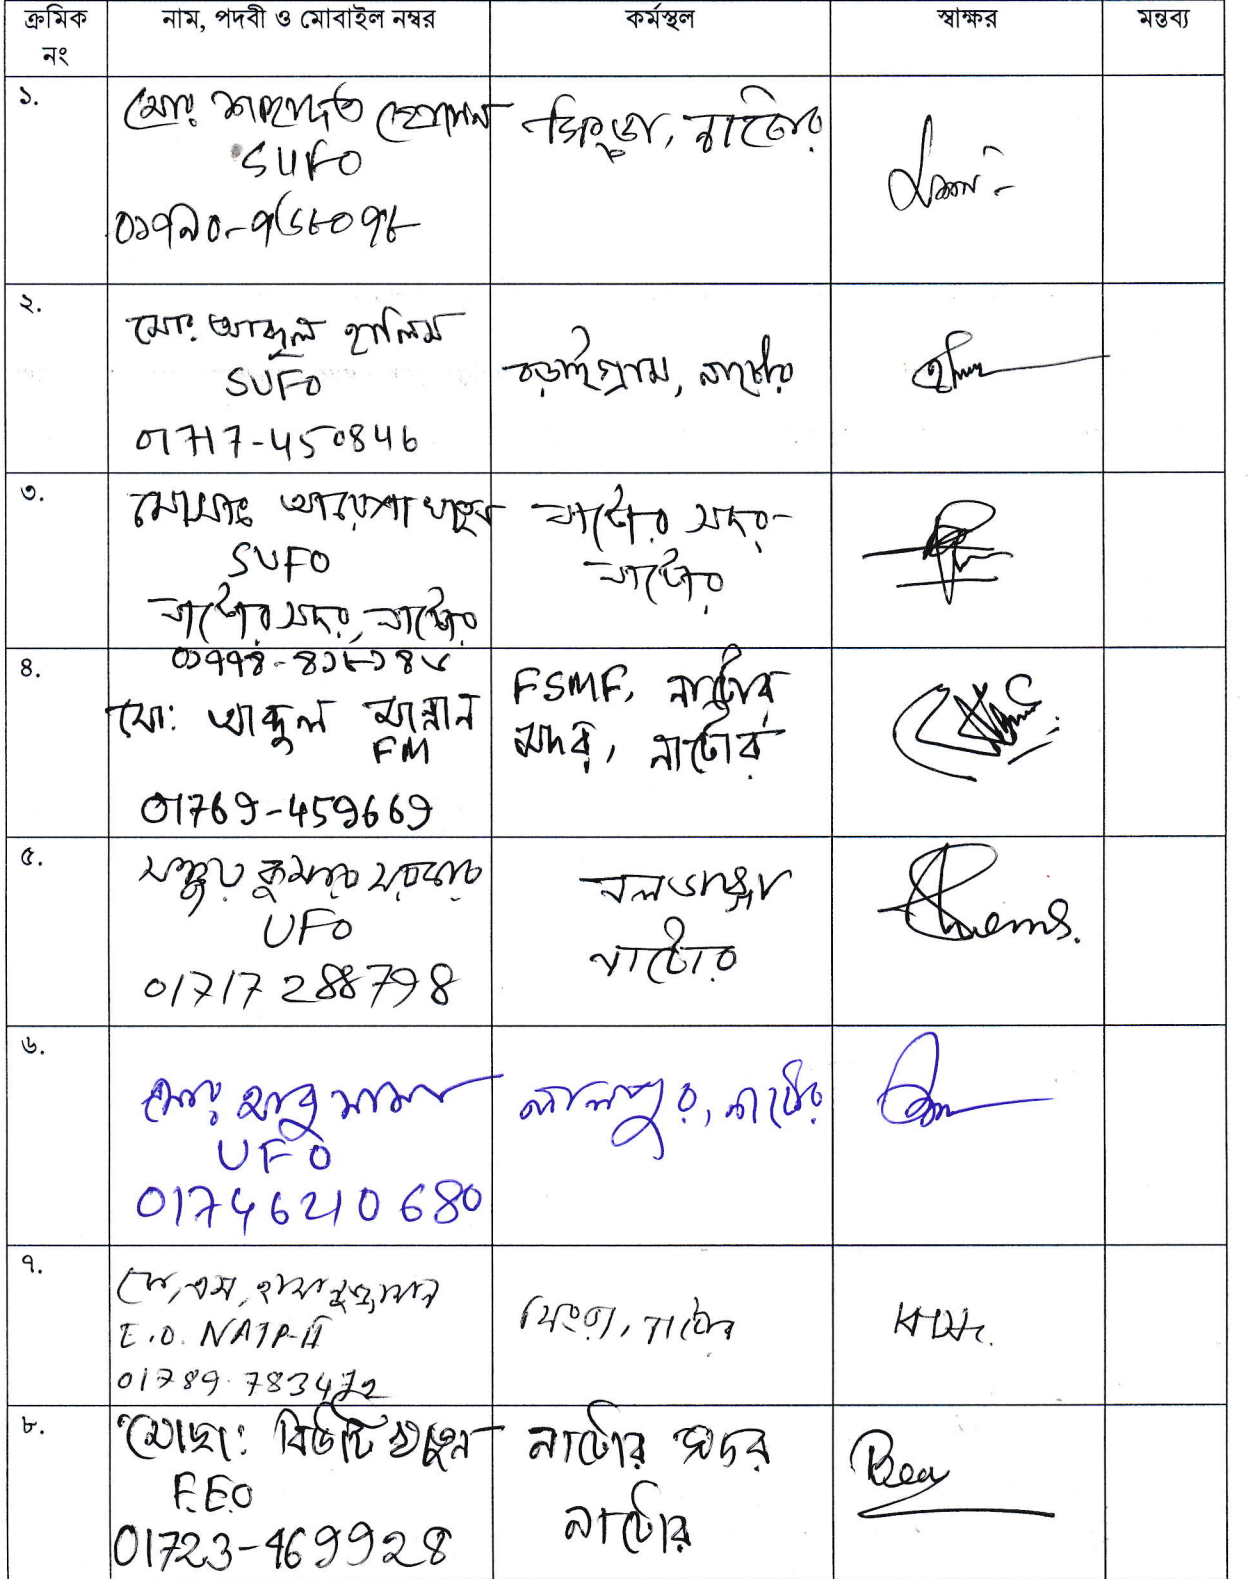 ক্রমিক নং নাম, পদবী ও মোবাইল নম্বর কর্মস্থল স্বাক্ষর মন্তব্য
১.
মোঃ শাহাদত হোসেন
SUFO
সিংড়া, নাটোর
২.
মোঃ আব্দুল হালিম
SUFO
01717-450846
বড়াইগ্রাম, নাটোর
৩.
মোসাঃ আয়েশা খাতুন
SUFO
নাটোর সদর, নাটোর
নাটোর সদর
নাটোর
৪.
মো: আব্দুল মান্নান
FM
01769-459669
FSMF, নাটোর
সদর, নাটোর
৫.
কুমার সরকার
UFO
01717 288798
নলডাঙ্গা
নাটোর
৬.
মোঃ আবু সামা
UFO
01746210680
লালপুর, নাটোর
৭.
E.O. NATP-II
01789-783472
সিংড়া, নাটোর
৮.
মোছা: বিউটি খাতুন
F.E.O
01723-469928
নাটোর সদর
নাটোর